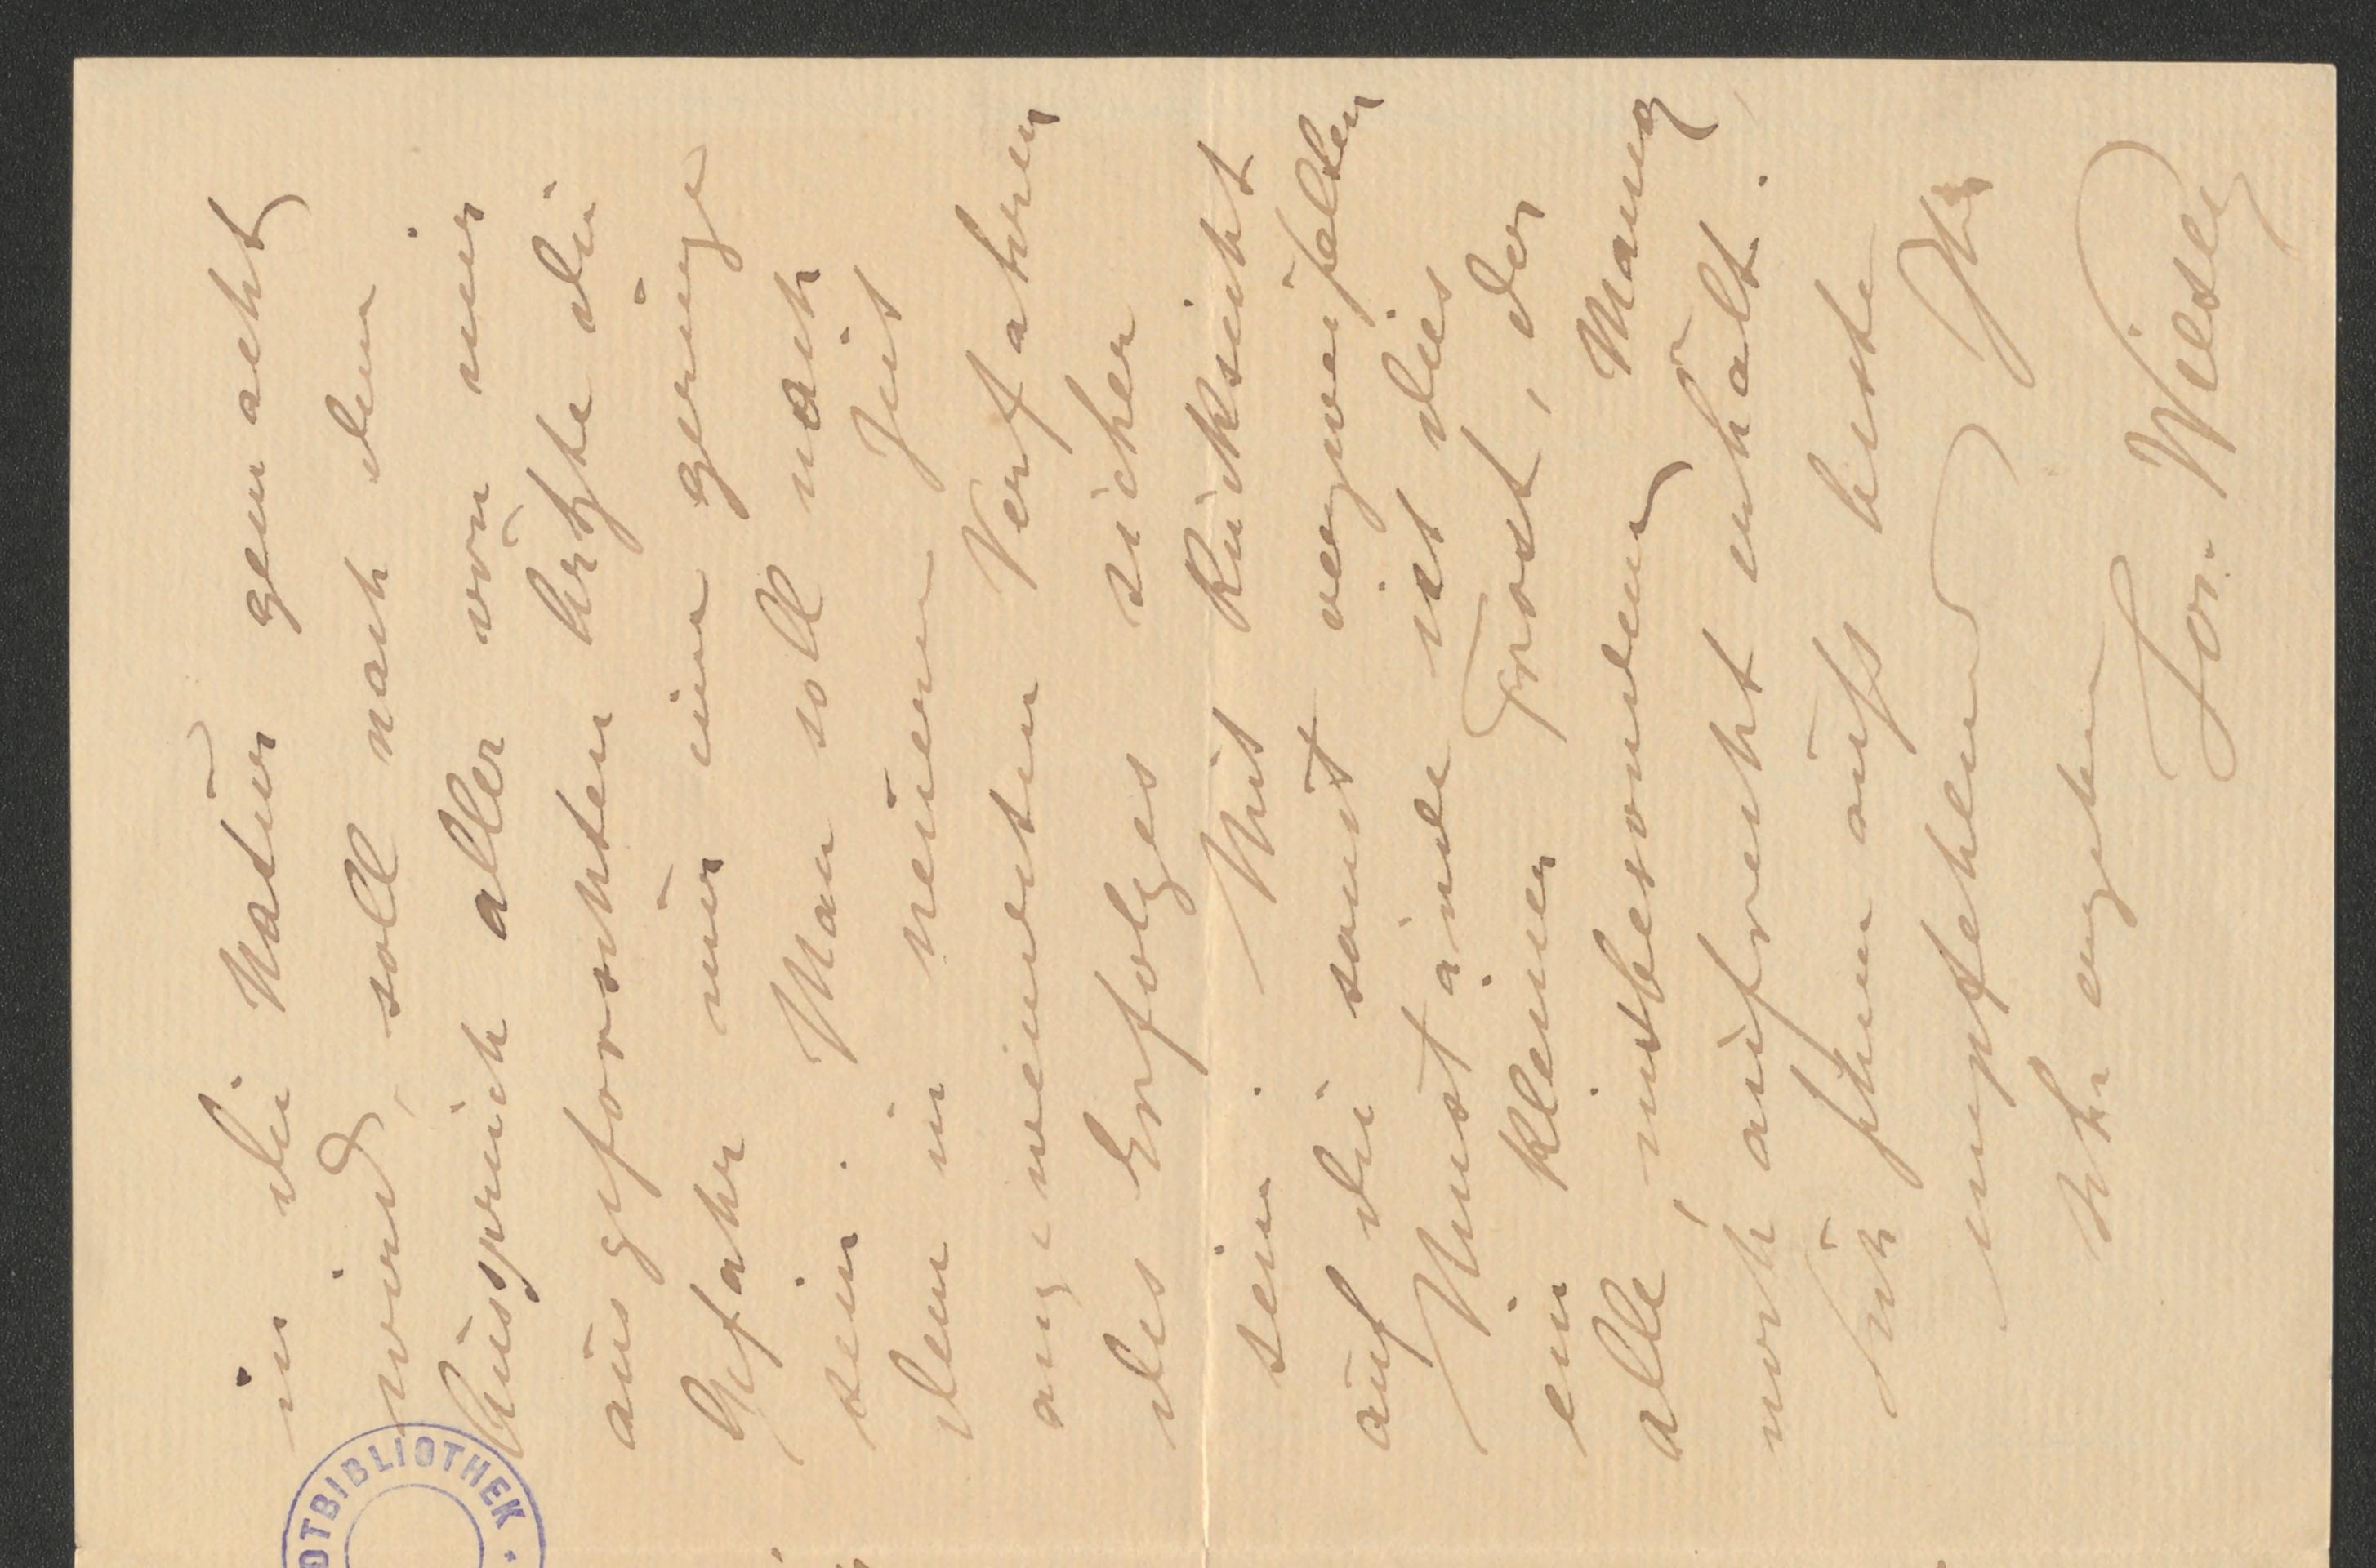 in die Natur gemacht
wird, soll nach dem
Ausspruch aller von mir
ausgeforschten Ärzte die
Gefahr nur eine geringe
sein. Man soll nach
dem in neuerer Zeit
angewendeten Verfahren
des Erfolges sicher
sein. Mit Rücksicht
auf die sonst verzweifelten
Umstände ist dies
ein kleiner Trost, der
alle, insbesondere Mama,
noch aufrecht erhält.
Sich Ihnen aufs beste
empfehlend Ihr
sehr ergeben
Jos.
STADTBIBLIOTHEK